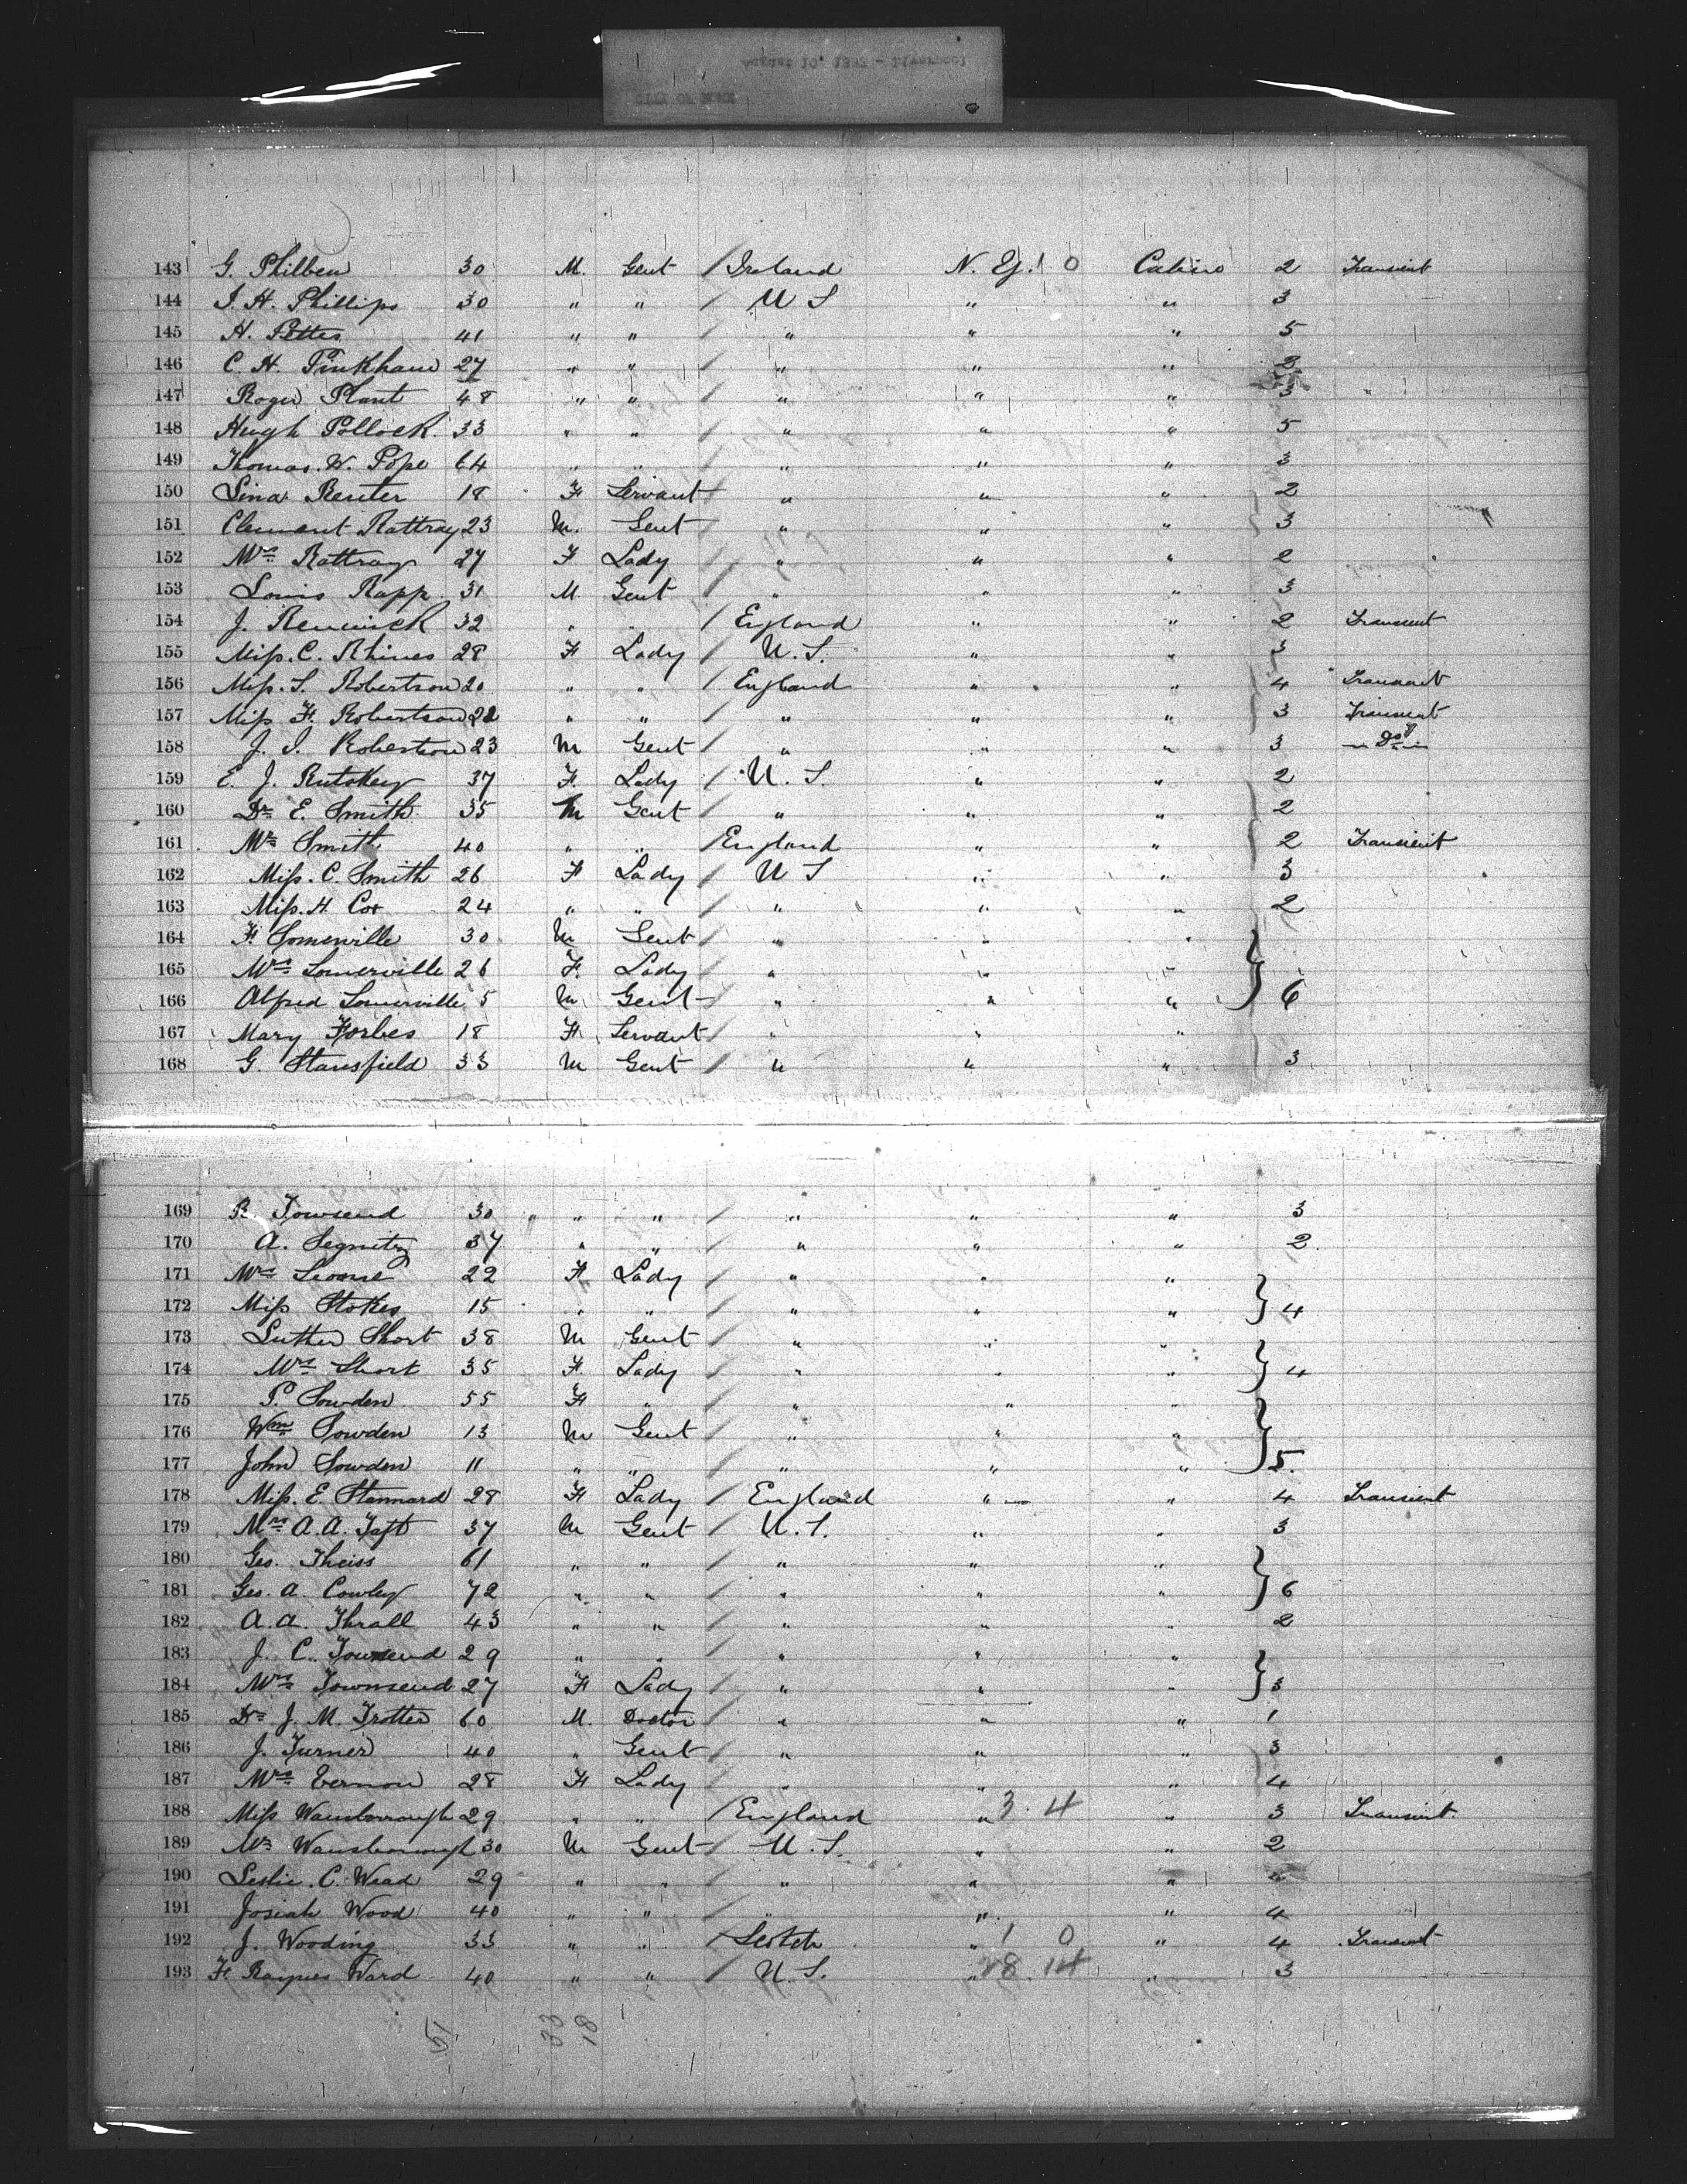 143 G. Philben 30 M. Gent / Ireland N. Y. 1 0 Cabin 2 Transient
144 J. H. Phillips 30 " " / U S " " 3
145 H. Pettes 41 " " / " " " 5
146 C. H. Pinkham 27 " " / " " "
147 Roger Plant 48 " " / " " " 3
148 Hugh Pollock. 33 " " / " " " 5
149 Thomas. W. Pope 64 " " / " " " 3
150 Lina Reuter 18 F Servant / " " " 2
151 Clement Rattray 23 M. Gent / " " " 3
152 Mrs Rattray 27 F Lady / " " " 2
153 Louis Rapp. 31 M Gent / " " " 3
154 J. Renwick 32 " " / England " " 2 Transient
155 Miss. C. Rhines 28 F Lady / U. S. " " 3
156 Miss. S. Robertson 20 " " / England " " 4 Transient
157 Miss F. Robertson 22 " " / " " " 3 Transient
158 J. I. Robertson 23 M Gent / " " " 3 " Do "
159 E. J. 37 F. Lady / U. S. " " 2
160 Dr E. Smith 35 M Gent / " " " 2
161 Mr Smith 40 " " / England " " 2 Transient
162 Miss. C. Smith 26 F Lady / U S " " 3
163 Miss. H. Cox 24 " " / " " " 2
164 F. Somerville 30 M Gent / " " "
165 Mrs Somerville 26 F. Lady / " " "
166 Alfred Somerville 5 M Gent / " " " } 6
167 Mary Forbes 18 F. Servant / " " "
168 G. Stansfield 33 M Gent / " " " 3
169 R. Towsend 30 " " / " " " 3
170 A. Segnitz 37 " " / " " " 2
171 Mrs 22 F Lady / " " "
172 Miss Stokes 15 " " / " " " } 4
173 Luther Short 38 M Gent / " " "
174 Mrs Short 35 F. Lady / " " " } 4
175 P. Sowden 55 F " / " " "
176 Wm Sowden 13 M Gent / " " "
177 John Sowden 11 " " / " " " } 5.
178 Miss. E. Stannard 28 F Lady / England " " 4 Transient
179 A. A. Taft 37 M Gent / U. S. " " 3
180 Geo. Theiss 61 " " / " " "
181 Geo. A. Cowley 72 " " / " " " } 6
182 A. A. Thrall 43 " " / " " " 2
183 J. C. Townsend 29 " " / " " "
184 Mrs Townsend 27 F Lady / " " " } 3
185 Dr J. M. Trotter 60 M. Doctor / " " " 1
186 J. Turner 40 " Gent / " " " 3
187 Mrs Vernon 28 F Lady / " " " 4
188 Miss Wansborrough 29 " " / England " 3. 4 " 3 Transient.
189 Mr Wansborough 30 M Gent / U. S. " " 2
190 Leslie. C. Wead 29 " " / " " "
191 Josiah Wood 40 " " / " " " 4
192 J. Wooding 33 " " / Scotch " 1 0 " 4 Transient
193 F. Raynes Ward 40 " " / U. S. " 28. 14 " 3
33
18